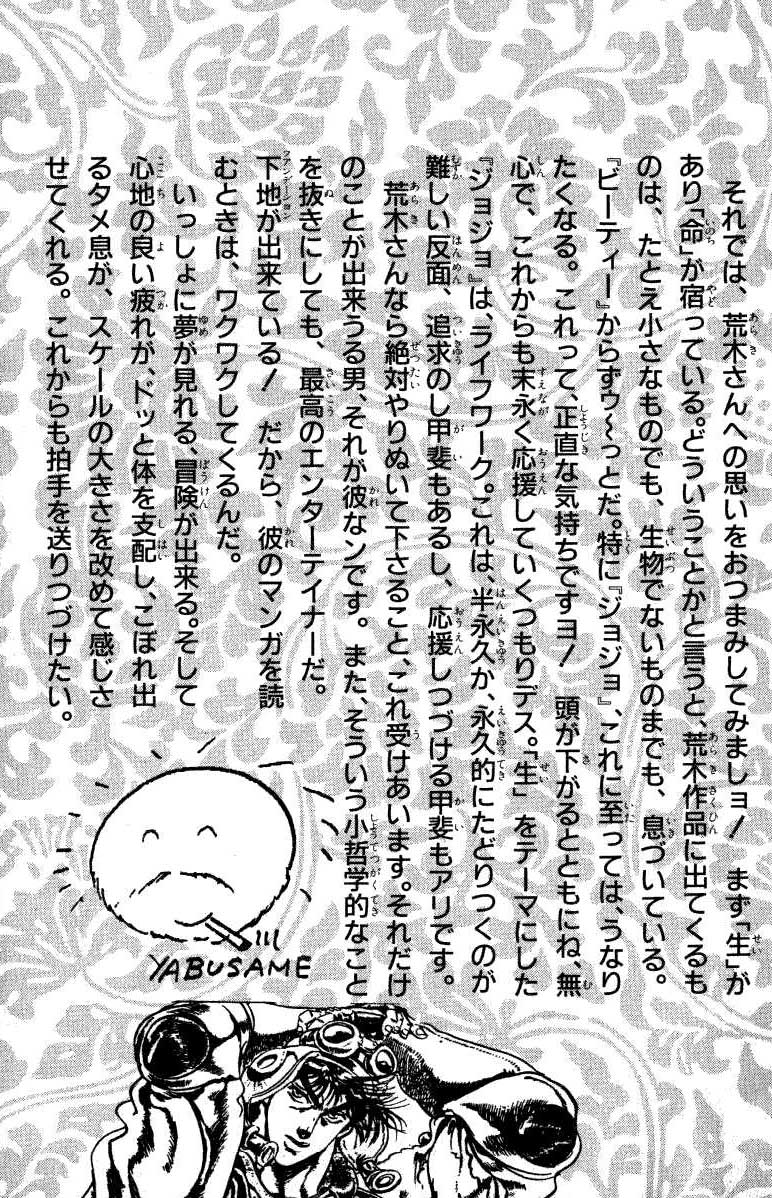 それでは、荒木さんへの思いをおつまみしてみましョ！　まず「生」が
あり「命」が宿っている。どういうことかと言うと、荒木作品に出てくるも
のは、たとえ小さなものでも、生物でないものまでも、息づいている。
『ビーティー』からずゥ〜っとだ。特に『ジョジョ』、これに至っては、うなり
たくなる。これって、正直な気持ちですヨ！　頭が下がるとともにね、無
心で、これからも末永く応援していくつもりデス。「生」をテーマにした
『ジョジョ』は、ライフワーク。これは、半永久か、永久的にたどりつくのが
難しい反面、追求のし甲斐もあるし、応援しつづける甲斐もアリです。
荒木さんなら絶対やりぬいて下さること、これ受けあいます。それだけ
のことが出来うる男、それが彼なンです。また、そういう小哲学的なこと
を抜きにしても、最高のエンターテイナーだ。
下地が出来ている！　だから、彼のマンガを読
むときは、ワクワクしてくるんだ。
いっしょに夢が見れる、冒険が出来る。そして
心地の良い疲れが、ドッと体を支配し、こぼれ出
るタメ息が、スケールの大きさを改めて感じさ
せてくれる。これからも拍手を送りつづけたい。
YABUSAME